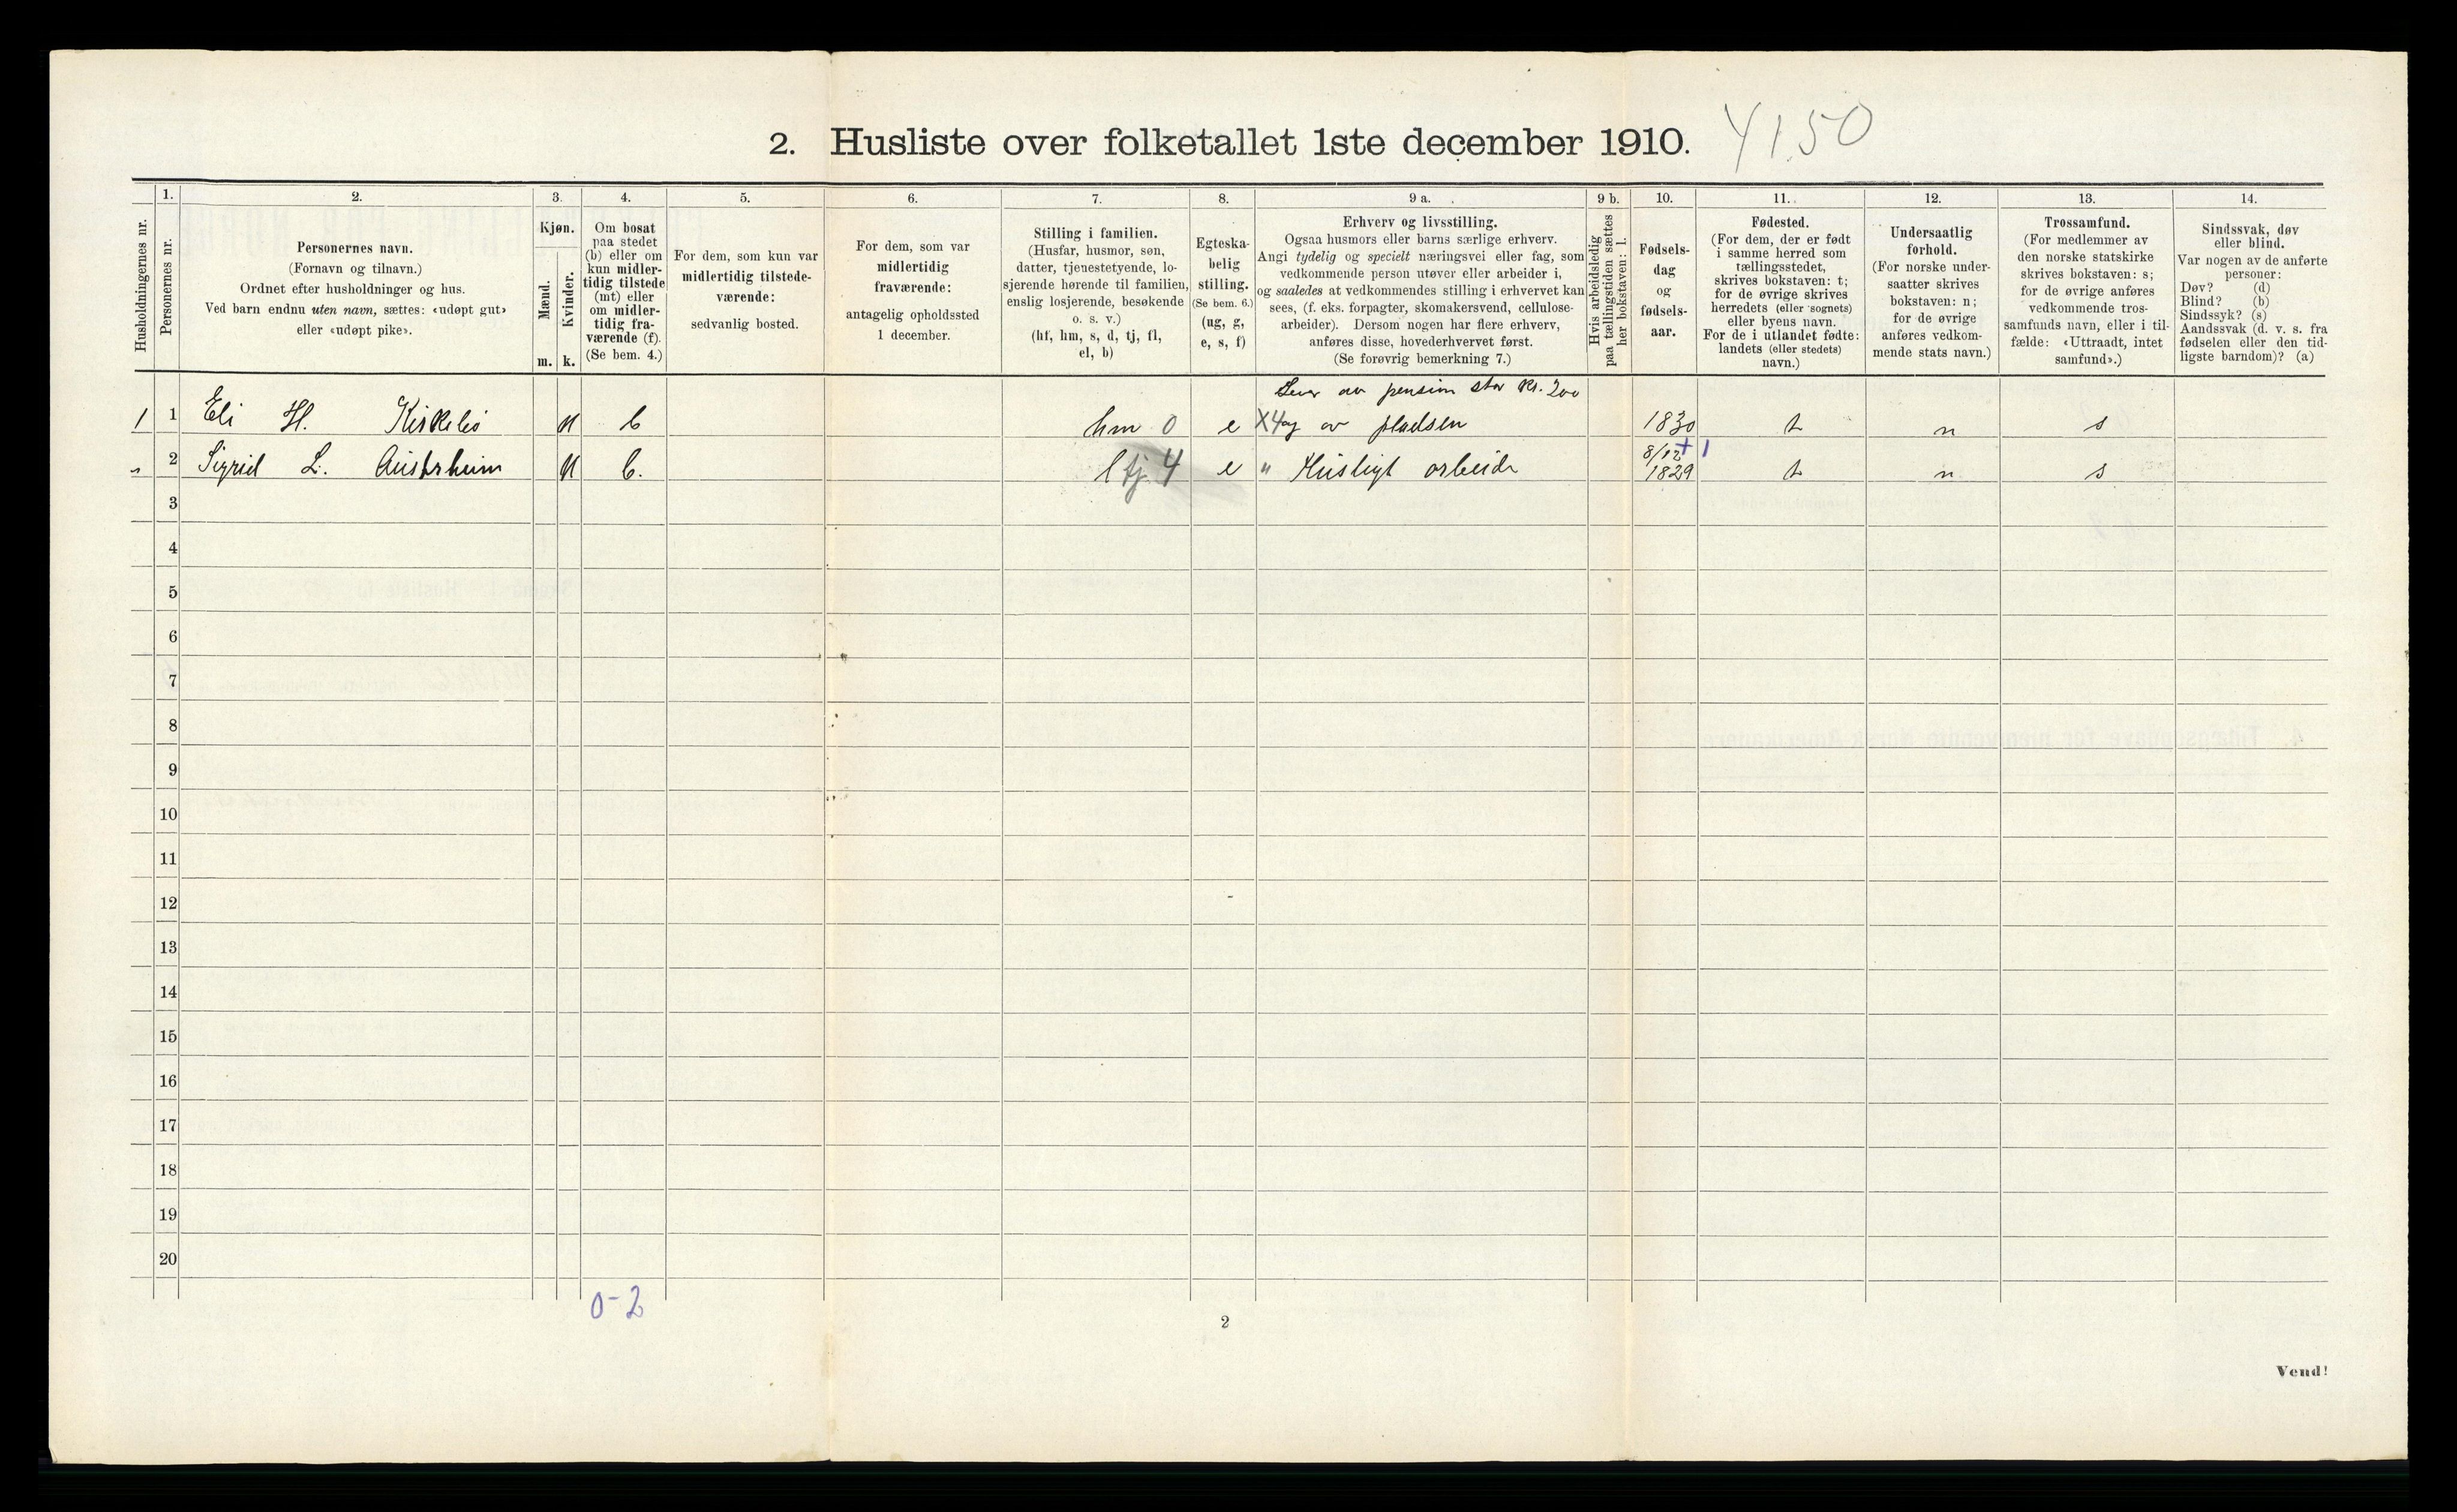 2. Husliste over folketallet 1ste december 1910. 4150
1. 2. 3. 4. 5. 6. 7. 8. 9 a. 9 b. 10. 11. 12. 13. 14.
Husholdningernes nr.
Personernes nr.
Personernes navn.
(Fornavn og tilnavn.)
Ordnet efter husholdninger og hus.
Ved barn endnu uten navn, sættes: «udøpt gut»
eller «udøpt pike».
Kjøn.
Mænd.
Kvinder.
m. k.
Om bosat
paa stedet
(b) eller om
kun midler-
tidig tilstede
(mt) eller
om midler-
tidig fra-
værende (f).
(Se bem. 4.)
For dem, som kun var
midlertidig tilstede-
værende:
sedvanlig bosted.
For dem, som var
midlertidig
fraværende:
antagelig opholdssted
1 december.
Stilling i familien.
(Husfar, husmor, søn,
datter, tjenestetyende, lo-
sjerende hørende til familien,
enslig losjerende, besøkende
o. s. v.)
(hf, hm, s, d, tj, fl,
el, b)
Egteska-
belig
stilling.
(Se bem. 6.)
(ug, g,
e, s, f)
Erhverv og livsstilling.
Ogsaa husmors eller barns særlige erhverv.
Angi tydelig og specielt næringsvei eller fag, som
vedkommende person utøver eller arbeider i,
og saaledes at vedkommendes stilling i erhvervet kan
sees, (f. eks. forpagter, skomakersvend, cellulose-
arbeider). Dersom nogen har flere erhverv,
anføres disse, hovederhvervet først.
(Se forøvrig bemerkning 7.)
Hvis arbeidsledig
paa tællingstiden sættes
her bokstaven: l.
Fødsels-
dag
og
fødsels-
aar.
Fødested.
(For dem, der er født
i samme herred som
tællingsstedet,
skrives bokstaven: t;
for de øvrige skrives
herredets (eller sognets)
eller byens navn.
For de i utlandet fødte:
landets (eller stedets)
navn.)
Undersaatlig
forhold.
(For norske under-
saatter skrives
bokstaven: n;
for de øvrige
anføres vedkom-
mende stats navn.)
Trossamfund.
(For medlemmer av
den norske statskirke
skrives bokstaven: s;
for de øvrige anføres
vedkommende tros-
samfunds navn, eller i til-
fælde: «Uttraadt, intet
samfund».)
Sindssvak, døv
eller blind.
Var nogen av de anførte
personer:
Døv? (d)
Blind? (b)
Sindssyk? (s)
Aandssvak (d. v. s. fra
fødselen eller den tid-
ligste barndom)? (a)
Lever av pension stor kr. 200
1 1 Eli H. b hm 0 e X4 og av pladsen 1830 t n s
8/12 + 1
2 Sigrid L. b. tj 4 e " Husligt arbeide 1829 t n s
3
4
5
6
7
8
9
10
11
12
13
14
15
16
17
18
19
20
0-2
2
Vend!